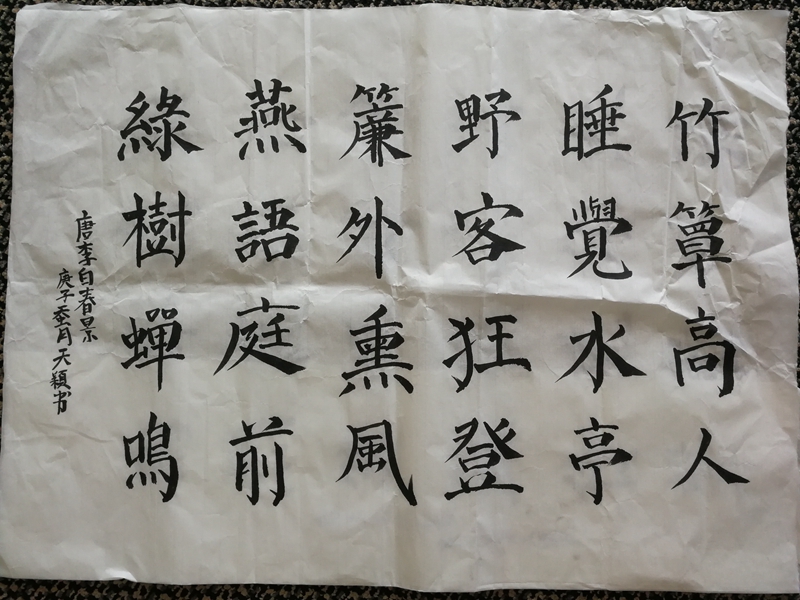 竹簟高人
睡覺水亭
野客狂登
簾外熏風
燕語庭前
綠樹蟬鳴
唐李白春景
庚子叁月天穎书